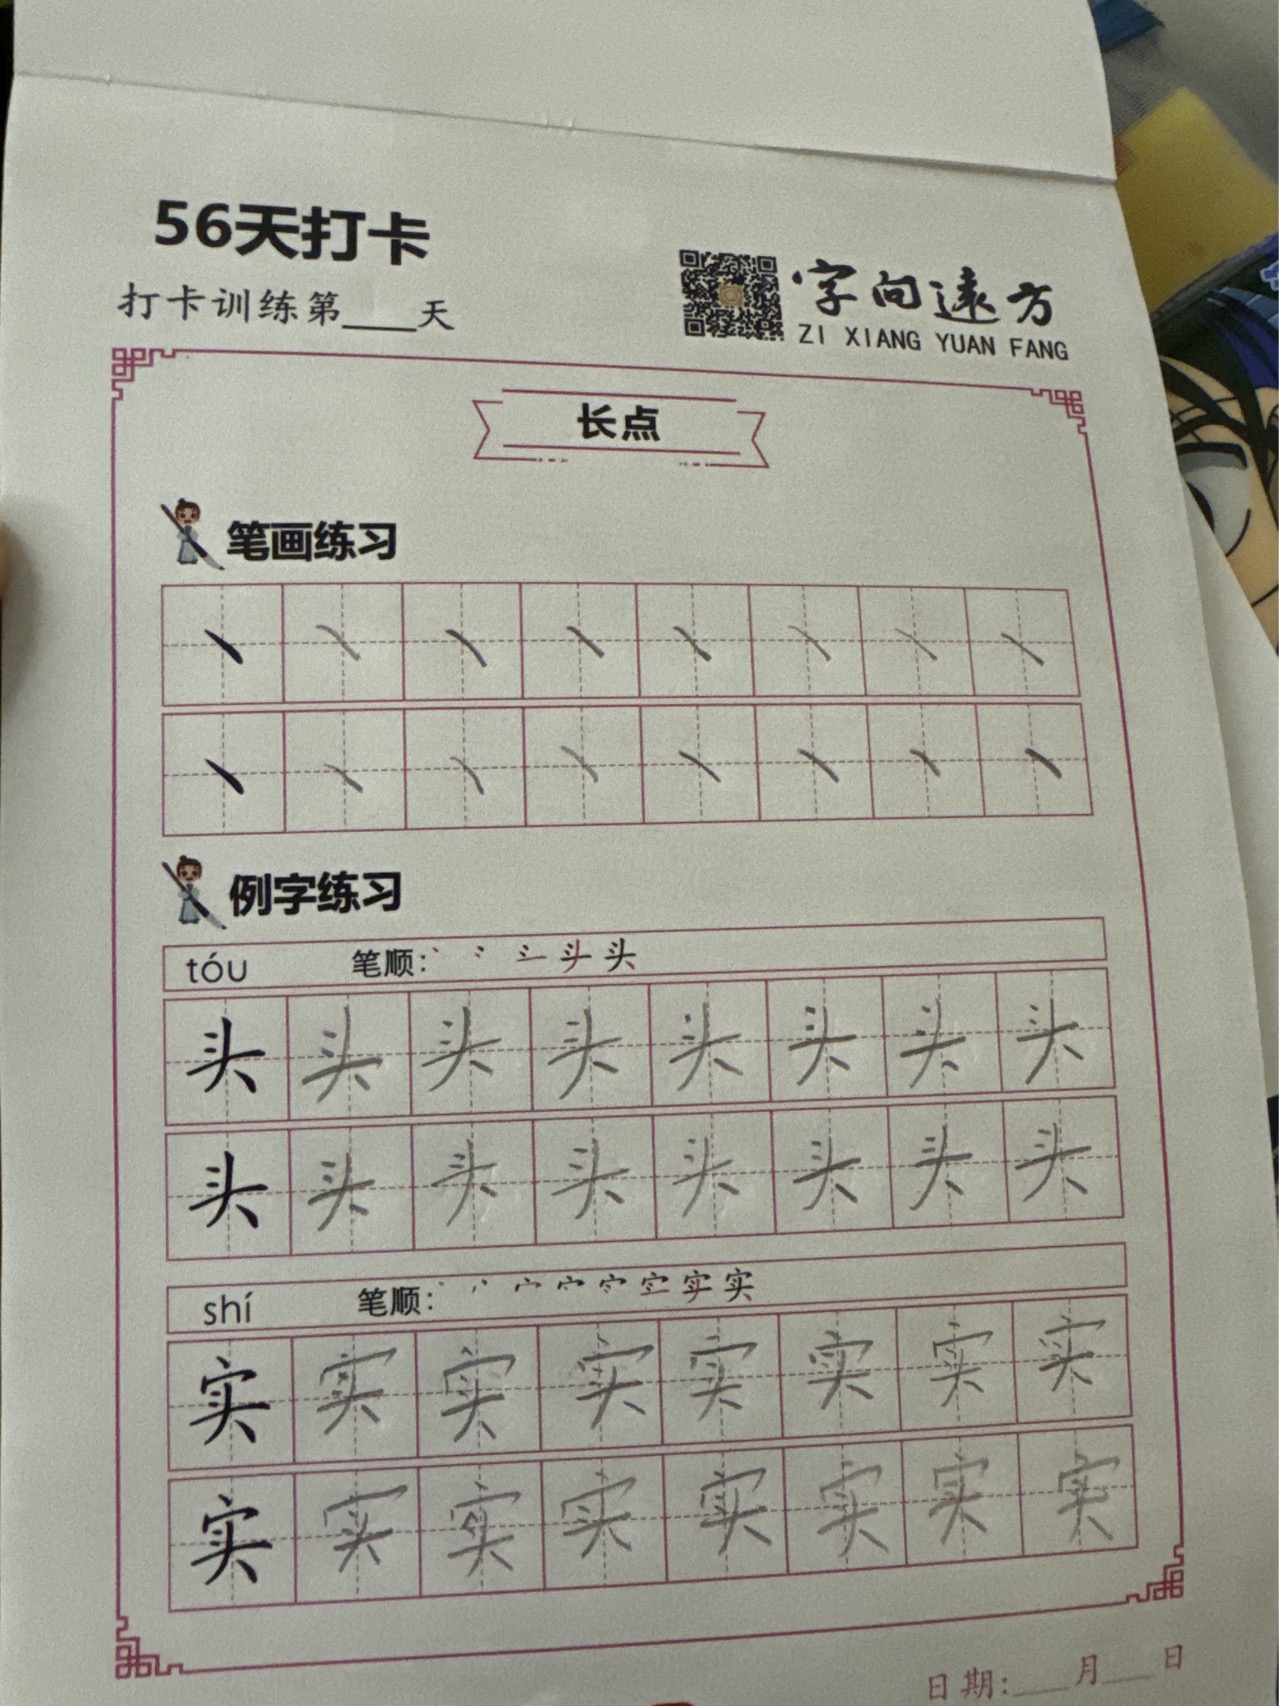 56天打卡
打卡训练第____天
字向遠方
ZI XIANG YUAN FANG
长点
笔画练习
例字练习
tóu 笔顺: 头
头 头 头 头 头 头 头 头
头 头 头 头 头 头 头 头
shí 笔顺: 实
实 实 实 实 实 实 实 实
实 实 实 实 实 实 实 实
日期:___月___日